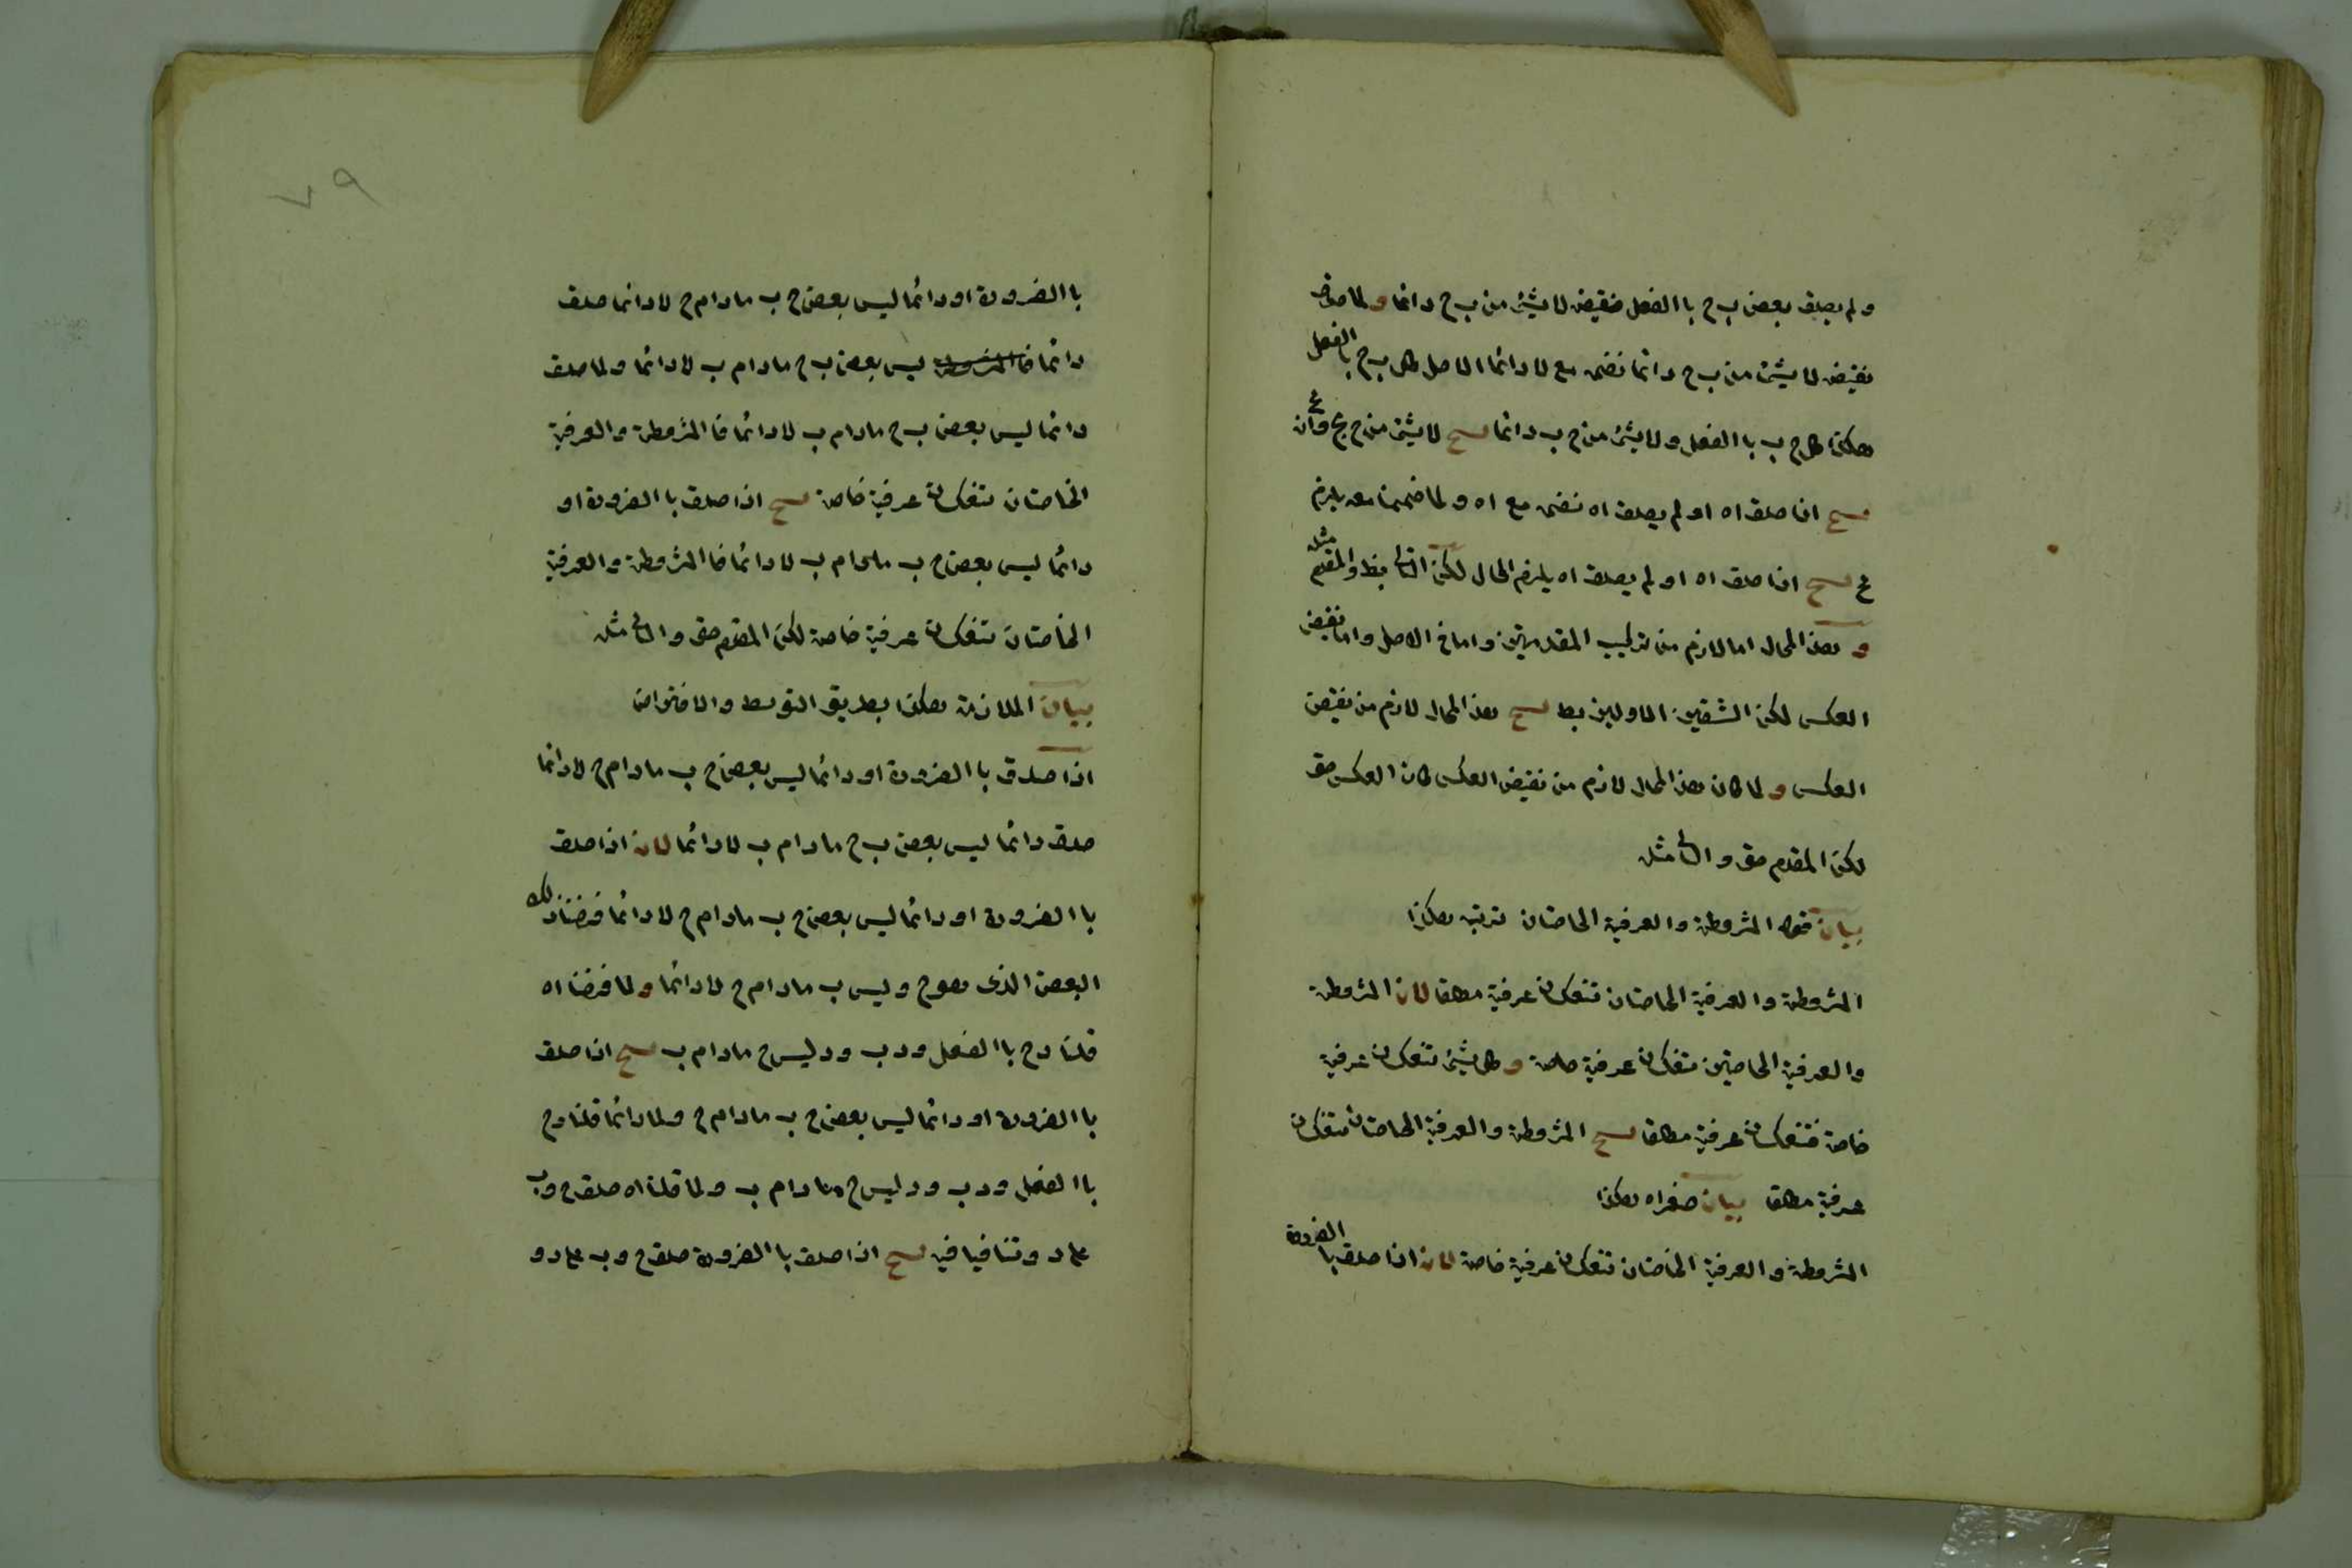 ولم يصدق بعض ب ج با الفعل فنقيضه لا يشئ من ب ج دائما و لما صدق
نقيضه لا يشئ من ب ج دائما نضمه مع لا دائما الاصل كل ب ج با الفعل
هكذا كل ج ب با الفعل ولا يشئ من ج ب دائما لا يشئ من ج ج وان
اذا صدق اه او لم يصدق اه نضمه مع اه ولما ضممنا معه يلزم
اذا صدق اه او لم يصدق اه يلزم المحال لكن التا بط والمقدم مثله
و هذا المحال اما لازم من تركيب المقدمتين واما خ الاصل واما نقيض
العكس لكن الشقين الاولين بط هذا المحال لازم من نقيض
العكس و لما كان هذا المحال لازم من نقيض العكس كان العكس حق
لكن المقدم حق والتا مثله
بيان قوله المشروطة والعرفية الخاصتان ترتبه هكذا
المشروطة والعرفية الخاصتان تنعكسان عرفية مطلقا لان المشروطة
والعرفية الخاصتين تنعكسان عرفية خاصة و كل يشئ تنعكسان عرفية
خاصة فتنعكسان عرفية مطلقا المشروطة والعرفية الخاصتان تنعكسان
عرفية مطلقا بيان صغراه هكذا
المشروطة والعرفية الخاصتان تنعكسان عرفية خاصة لان اذا صدق با الضرورة
٧٩
با الضرورة او دائما ليس بعض ج ب مادام ج لا دائما صدق
دائما ليس بعض ب ج مادام ب لا دائما ولما صدق
دائما ليس بعض ب ج مادام ب لا دائما فا المشروطة والعرفية
الخاصتان تنعكسان عرفية خاصة اذا صدق با الضرورة او
دائما ليس بعض ج ب مادام ب لا دائما فا المشروطة والعرفية
الخاصتان تنعكسان عرفية خاصة لكن المقدم حق والتا مثله
بيان الملازمة هكذا بطريق التوسط والافتراض
اذا صدق با الضرورة او دائما ليس بعض ج ب مادام ج لا دائما
صدق دائما ليس بعض ب ج مادام ب لا دائما لان اذا صدق
با الضرورة او دائما ليس بعض ج ب مادام ج لا دائما فرضنا ذلك
البعض الذى هو ج وليس ب مادام ج لا دائما و لما فرضنا اه
قلنا د ج با الفعل و د ب و د ليس ج مادام ب اذا صدق
با الضرورة او دائما ليس بعض ج ب مادام ج ولا دائما قلنا د ج
با الفعل و د ب و د ليس ج مادام ب ولما قلنا اه صدق ج و ب
على د و تنافيا فيه اذا صدق با الضرورة صدق ج و ب على د و